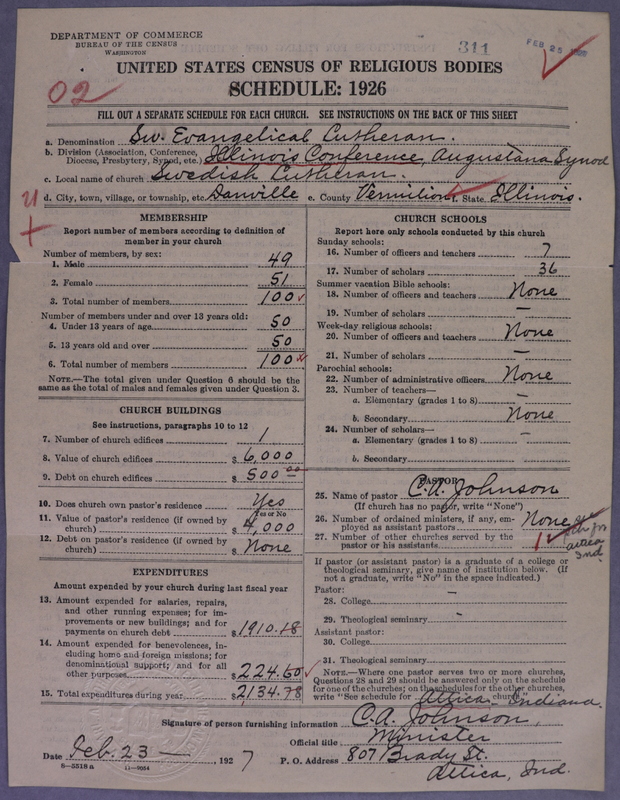 DEPARTMENT OF COMMERCE
BUREAU OF THE CENSUS
WASHINGTON
311
FEB 25
UNITED STATES CENSUS OF RELIGIOUS BODIES
SCHEDULE: 1926
02
FILL OUT A SEPARATE SCHEDULE FOR EACH CHURCH. SEE INSTRUCTIONS ON THE BACK OF THIS SHEET
a. Denomination Sw. Evangelical Lutheran.
b. Division (Association, Conference, Diocese, Presbytery, Synod, etc.) Illinois Conference, Augustana Synod
c. Local name of church Swedish Lutheran.
d. City, town, village, or township, etc. Danville e. County Vermilion f. State Illinois.
MEMBERSHIP
Report number of members according to definition of
member in your church
Number of members, by sex:
1. Male 49
2. Female 51
3. Total number of members 100
Number of members under and over 13 years old:
4. Under 13 years of age 50
5. 13 years old and over 50
6. Total number of members 100
NOTE.—The total given under Question 6 should be the
same as the total of males and females given under Question 3.
CHURCH BUILDINGS
See instructions, paragraphs 10 to 12
7. Number of church edifices 1
8. Value of church edifices $ 6,000
9. Debt on church edifices $ 500 00
10. Does church own pastor's residence Yes
Yes or No
11. Value of pastor's residence (if owned by
church) $ 4,000
12. Debt on pastor's residence (if owned by
church) $ None
EXPENDITURES
Amount expended by your church during last fiscal year
13. Amount expended for salaries, repairs,
and other running expenses; for im-
provements or new buildings; and for
payments on church debt $ 1910.18
14. Amount expended for benevolences, in-
cluding home and foreign missions; for
denominational support; and for all
other purposes $ 224.60
15. Total expenditures during year $ 2134.78
CHURCH SCHOOLS
Report here only schools conducted by this church
Sunday schools:
16. Number of officers and teachers 7
17. Number of scholars 36
Summer vacation Bible schools:
18. Number of officers and teachers None
19. Number of scholars —
Week-day religious schools:
20. Number of officers and teachers None
21. Number of scholars —
Parochial schools:
22. Number of administrative officers None
23. Number of teachers—
a. Elementary (grades 1 to 8) —
b. Secondary None
24. Number of scholars—
a. Elementary (grades 1 to 8) —
b. Secondary —
PASTOR
25. Name of pastor C.A. Johnson
(If church has no pastor, write "None")
26. Number of ordained ministers, if any, em-
ployed as assistant pastors None
27. Number of other churches served by the
pastor or his assistants 1
Attica
Ind.
If pastor (or assistant pastor) is a graduate of a college or
theological seminary, give name of institution below. (If
not a graduate, write "No" in the space indicated.)
Pastor:
28. College —
29. Theological seminary —
Assistant pastor:
30. College
31. Theological seminary
NOTE.—Where one pastor serves two or more churches,
Questions 28 and 29 should be answered only on the schedule
for one of the churches; on the schedules for the other churches,
write "See schedule for Attica Indiana church."
Signature of person furnishing information C.A. Johnson,
Official title Minister
Date Feb. 23 — 1927
P. O. Address 807 Brady St.
Attica, Ind.
8—5518 a
11—9054